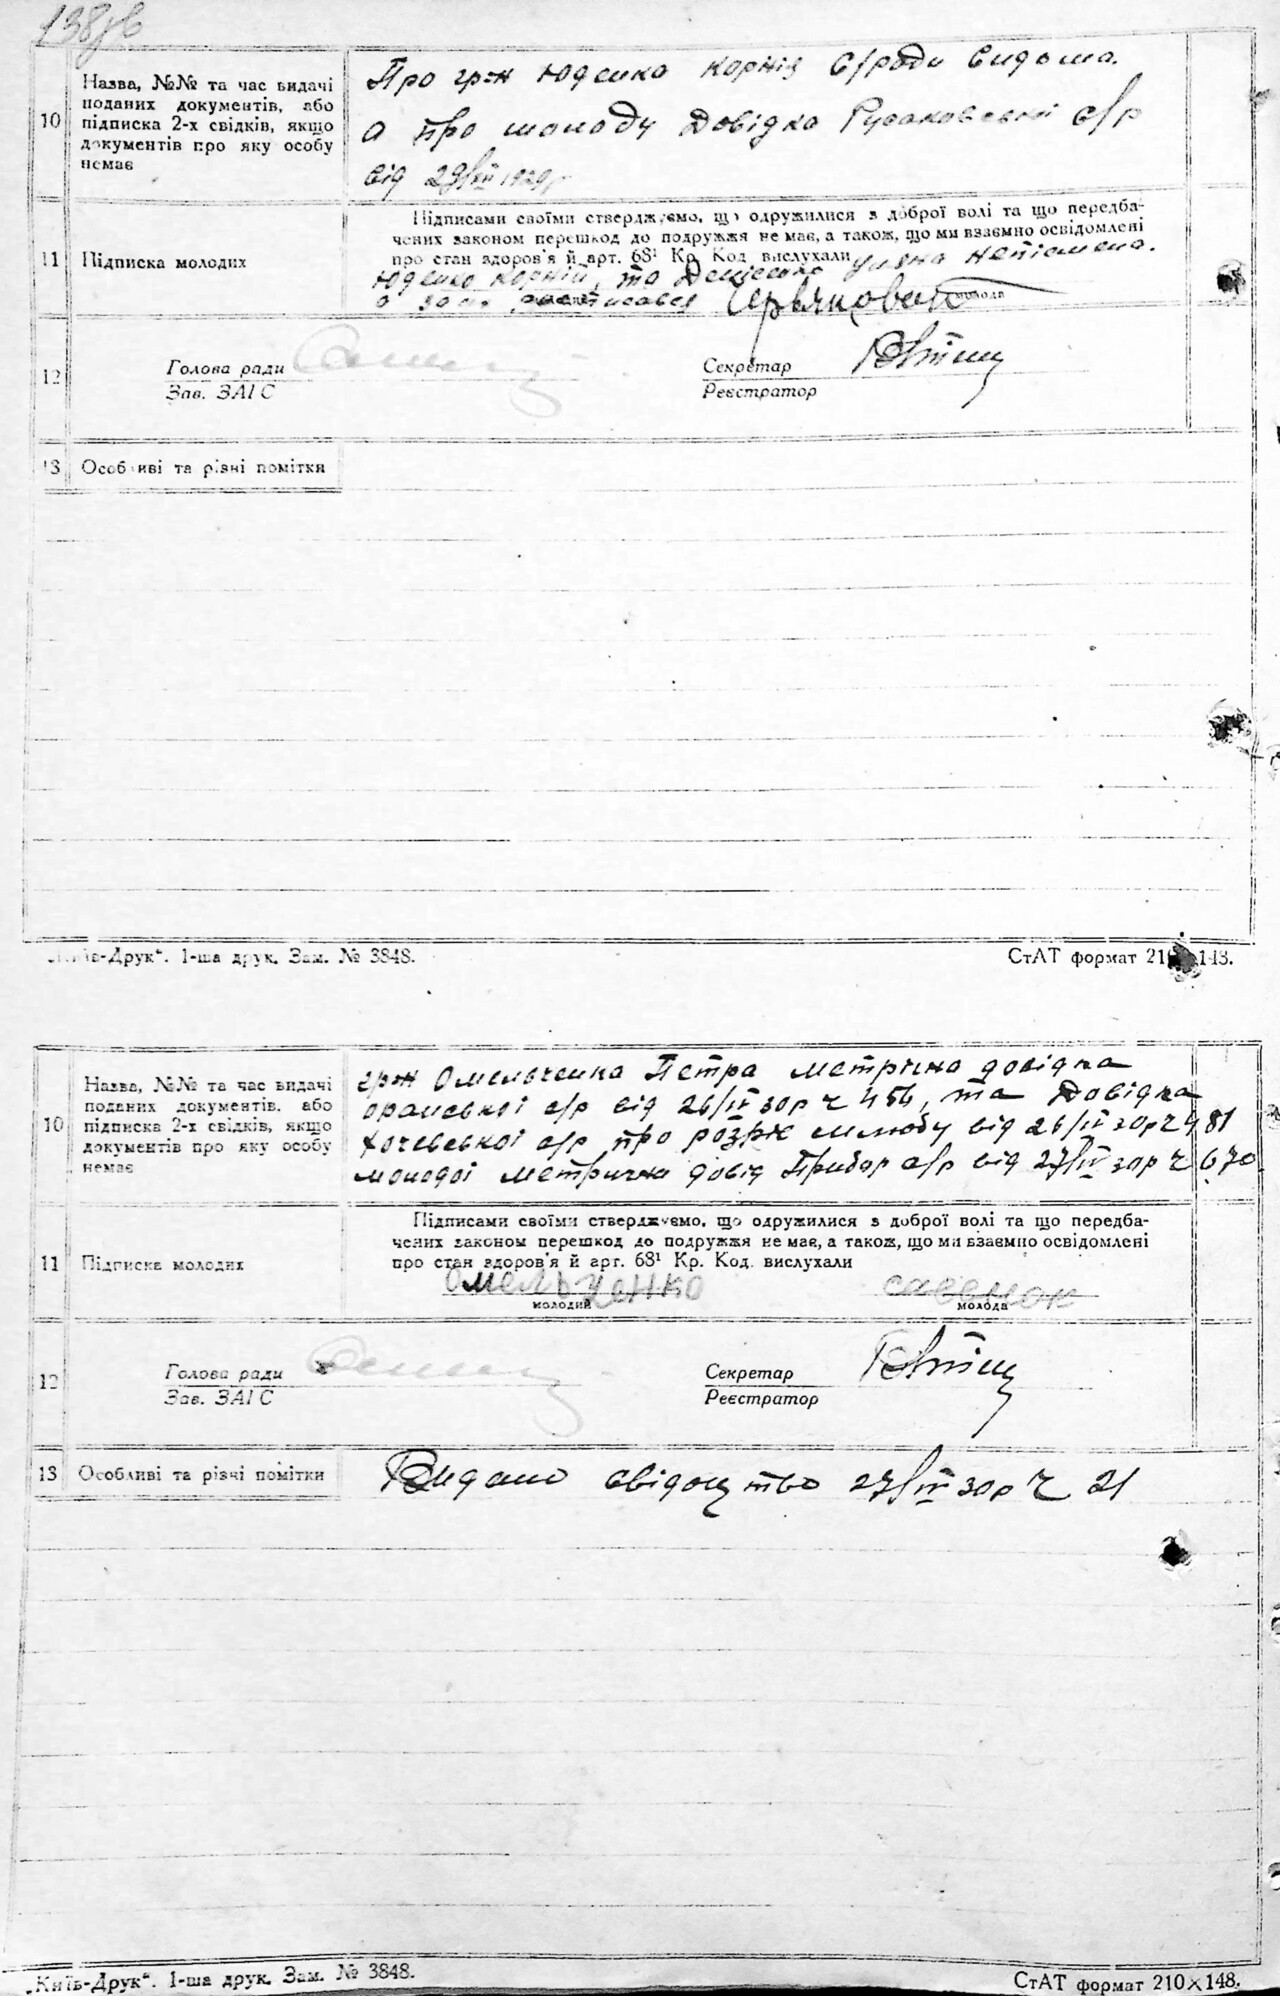 138зв
10
Назва, №№ та час видачі
поданих документів, або
підписка 2-х свідків, якщо
документів про яку особу
немає
Про гр-н Юденко Корнія С/ради видома.
а про молоду Довідка Русаковської с/р
від 29/XII 1929р
11
Підписка молодих
Підписами своїми стверджуємо, що одружилися з доброї волі та що передба-
чених законом перешкод до подружжя не має, а також, що ми взаємно освідомлені
про стан здоров'я й арт. 68¹ Кр. Код вислухали
Юденко Корній, та Уляна неписмена.
а за их
молода
12
Голова ради
Зав. ЗАГС
Секретар
Реєстратор
13
Особливі та різні помітки
„Київ-Друк“. 1-ша друк. Зам. № 3848.
СтАТ формат 210×148.
10
Назва, №№ та час видачі
поданих документів, або
підписка 2-х свідків, якщо
документів про яку особу
немає
гр-н Омельченка Петра метрична довідка
ораської с/р від 26/IV 30р ч 456, та Довідка
Хочевської с/р про розрив шлюбу від 26/IV 30р ч 481
молодої метрична довід Прибор с/р від 27/IV 30р ч 670
11
Підписка молодих
Підписами своїми стверджуємо, що одружилися з доброї волі та що передба-
чених законом перешкод до подружжя не має, а також, що ми взаємно освідомлені
про стан здоров'я й арт. 68¹ Кр. Код. вислухали
Омельченко
савенок
молодий
молода
12
Голова ради
Зав. ЗАГС
Секретар
Реєстратор
13
Особливі та різні помітки
Видано свідоцтво 27/IV 30р ч 21
„Київ-Друк“. 1-ша друк. Зам. № 3848.
СтАТ формат 210×148.